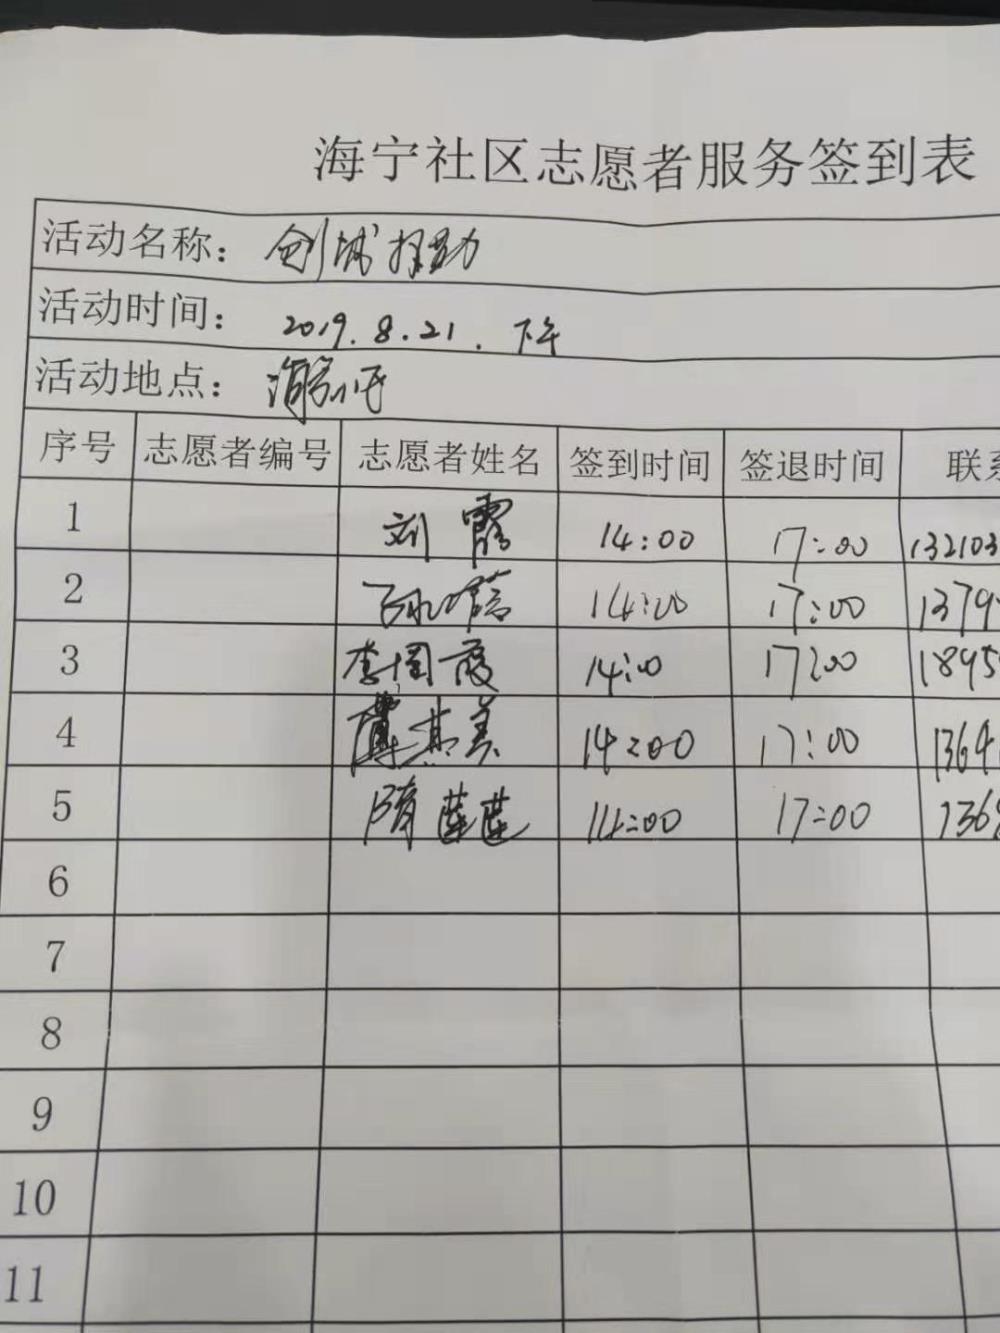 海宁社区志愿者服务签到表
活动名称：创城
活动时间：2019.8.21.下午
活动地点：
序号 志愿者编号 志愿者姓名 签到时间 签退时间 联系
1 刘霞 14:00 17:00 132103
2 14:00 17:00 1379
3 李国霞 14:00 17:00 1895
4 其美 14:00 17:00 1364
5 隋莲莲 14:00 17:00 1368
6
7
8
9
10
11